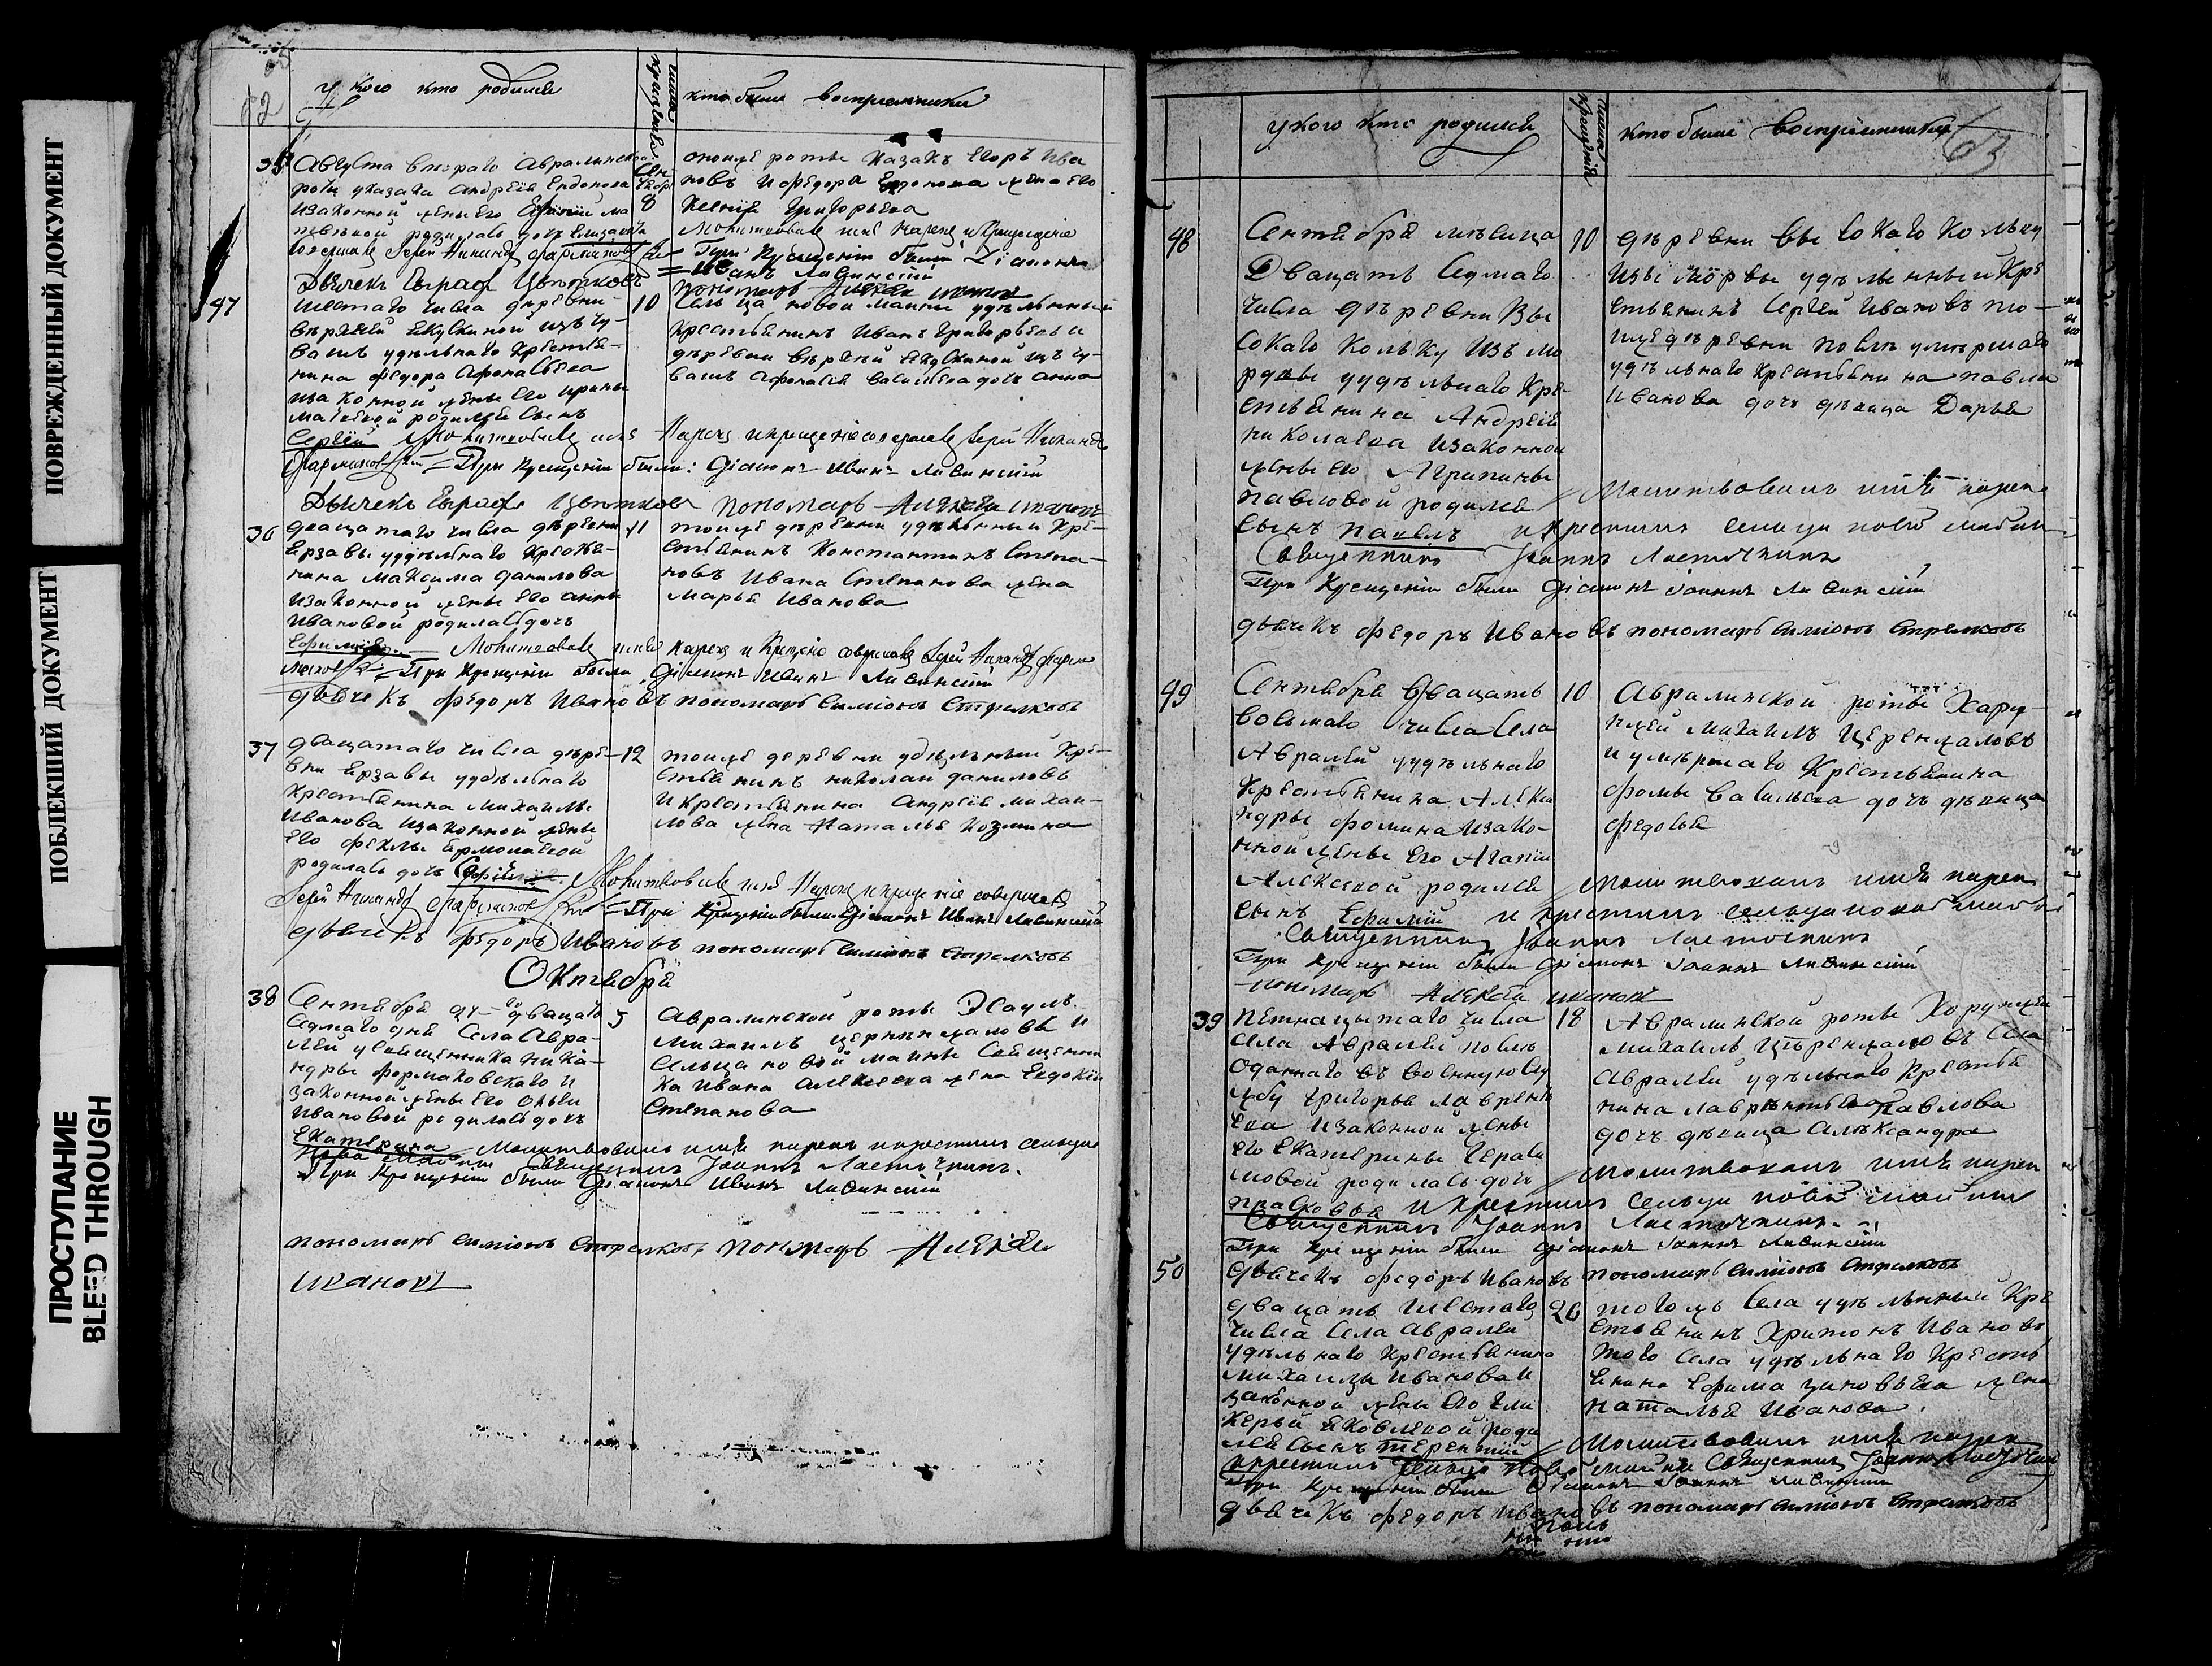 ПОВРЕЖДЕННЫЙ ДОКУМЕНТ
ПОБЛЕКШИЙ ДОКУМЕНТ
ПРОСТУПАНИЕ
BLEED THROUGH
62
у кого кто родился
число крещенія
кто были воспріемники
35
Августа втораго Авралинской
роты у казака Андрея Евдокимова
и законной жены его
родилась дочь Елизавета
8
оной же роты казакъ Егоръ Ива
новъ и Федора жена его
Ксенія Григорьева
Молитвовалъ имя нарекъ и крещеніе
совершалъ Іерей Никандръ Фармаковскій
При крещеніи были Діаконъ
Иванъ Лавинскій
Дьячекъ Евграфъ Цветковъ
пономарь Алексей Ивановъ
47
шестаго числа деревни
верхней Якушкиной изъ чу-
вашъ удельнаго крестья-
нина Федора Афонасьева
и законной жены его Ирины
Матвевой родился сынъ
Сергей
10
сельца новой маины удельный
крестьянинъ Иванъ Григорьевъ и
деревни верхней Якушкиной изъ чу-
вашъ Афонасья Васильева дочь анна
Молитвовалъ имя нарекъ и крещеніе совершалъ Іерей Никандръ
Фармаковскій = При крещеніи были: Діаконъ Иванъ Лавинскій
Дьячекъ Евграфъ Цветковъ пономарь Алексей Ивановъ
36
двацатаго числа деревни
Ерзавы удельнаго крестья-
нина Максима Данилова
и законной жены его анны
Ивановой родилась дочь
Ефимия
11
тойже деревни удельный кре-
стьянинъ Константинъ Степа-
новъ Ивана Степанова жена
Марья Иванова
Молитвовалъ имя нарекъ и крещеніе совершалъ Іерей Никандръ Фарма
ковскій = При крещеніи были Діаконъ Иванъ Лавинскій
дьячекъ Федоръ Ивановъ пономарь Симіонъ Стрелковъ
37
двацатаго числа дере-
вни Ерзавы удельнаго
крестьянина Михаилы
Иванова и законной жены
его Феклы Ермолаевой
родилась дочь
12
тойже деревни удельный кре-
стьянинъ Николай Даниловъ
и крестьянина Андрея Михаи-
лова жена Наталья Козмина
Молитвовалъ имя нарекъ и крещеніе совершалъ
Іерей Никандръ Фармаковскій = При крещеніи были Діаконъ Иванъ Лавинскій
дьячекъ Федоръ Ивановъ пономарь Симіонъ Стрелковъ
Октября
38
Сентября двацать
седмаго дня села Авра-
лей у священника Ника-
ндры Фармаковскаго и
законной жены его Ольги
Ивановой родилась дочь
Екатерина
5
Авралинской роты Эсаулъ
Михаилъ Церенжаловъ и
сельца новой маины священни
ка Ивана Алексеева жена Евдокия
Степанова
Молитвовалъ имя нарекъ и крестилъ сельца
Новой Маины Священникъ Іоаннъ Ласточкинъ.
При крещеніи были Діаконъ Иванъ Лавинскій
пономарь Симіонъ Стрелковъ пономарь Алексей
Ивановъ
63
у кого кто родился
число крещенія
кто были воспріемники
48
Сентября месяца
двацать седмаго
числа деревни Вы
сокаго Колку изъ мо
рдвы удельнаго кре-
стьянина Андрея
Николаева и законной
жены его Агрипины
Павловой родился
сынъ Павелъ
10
деревни высокаго колку
изъ мордвы удельный кре
стьянинъ Сергей Ивановъ то-
йже деревни после умершаго
удельнаго крестьянина Павла
Иванова дочь девица Дарья
Молитвовалъ имя нарекъ
и крестилъ сельца новой маины
Священникъ Іоаннъ Ласточкинъ
При крещеніи были Діаконъ Іоаннъ Лавинскій
дьячекъ Федоръ Ивановъ пономарь Симіонъ Стрелковъ
49
Сентября двацать
восьмаго числа села
Авралей удельнаго
крестьянина Алекса
ндры Фомина и зако-
нной жены его Агапии
Алексевой родился
сынъ Ефимий
10
Авралинской роты Хору-
нжей Михаилъ Церенжаловъ
и умершаго крестьянина
Фомы Васильева дочь девица
Федосья
Молитвовалъ имя нарекъ
и крестилъ сельца новой маины
Священникъ Іоаннъ Ласточкинъ
При крещеніи были Діаконъ Іоаннъ Лавинскій
пономарь Алексей Ивановъ
39
Петнацатаго числа
села Авралей после
отданнаго въ военную слу
жбу Григорья Лаврентъ
ева и законной жены
его Екатерины Гераси
мовой родилась дочь
Прасковья
18
Авралинской роты Хорунжей
Михаилъ Церенжаловъ села
Авралей удельнаго крестья
нина Лаврентья Павлова
дочь девица Александра
Молитвовалъ имя нарекъ
и крестилъ сельца новой маины
Священникъ Іоаннъ Ласточкинъ.
При крещеніи были Діаконъ Іоаннъ Лавинскій
дьячекъ Федоръ Ивановъ пономарь Симіонъ Стрелковъ
50
двацать шестаго
числа села Авралей
удельнаго крестьянина
Михаилы Иванова и
законной жены его Гли
керьи Яковлевой роди
лся сынъ Терентий
26
тогожъ села удельный кре
стьянинъ Харитонъ Ивановъ
того села удельнаго кресть
янина Ефима Зиновьева жена
Наталья Иванова.
Молитвовалъ имя нарекъ
и крестилъ сельца Новой маины Священникъ Іоаннъ Ласточкинъ
При крещеніи были Діаконъ Іоаннъ Лавинскій
дьячекъ Федоръ Ивановъ пономарь Симіонъ Стрелковъ